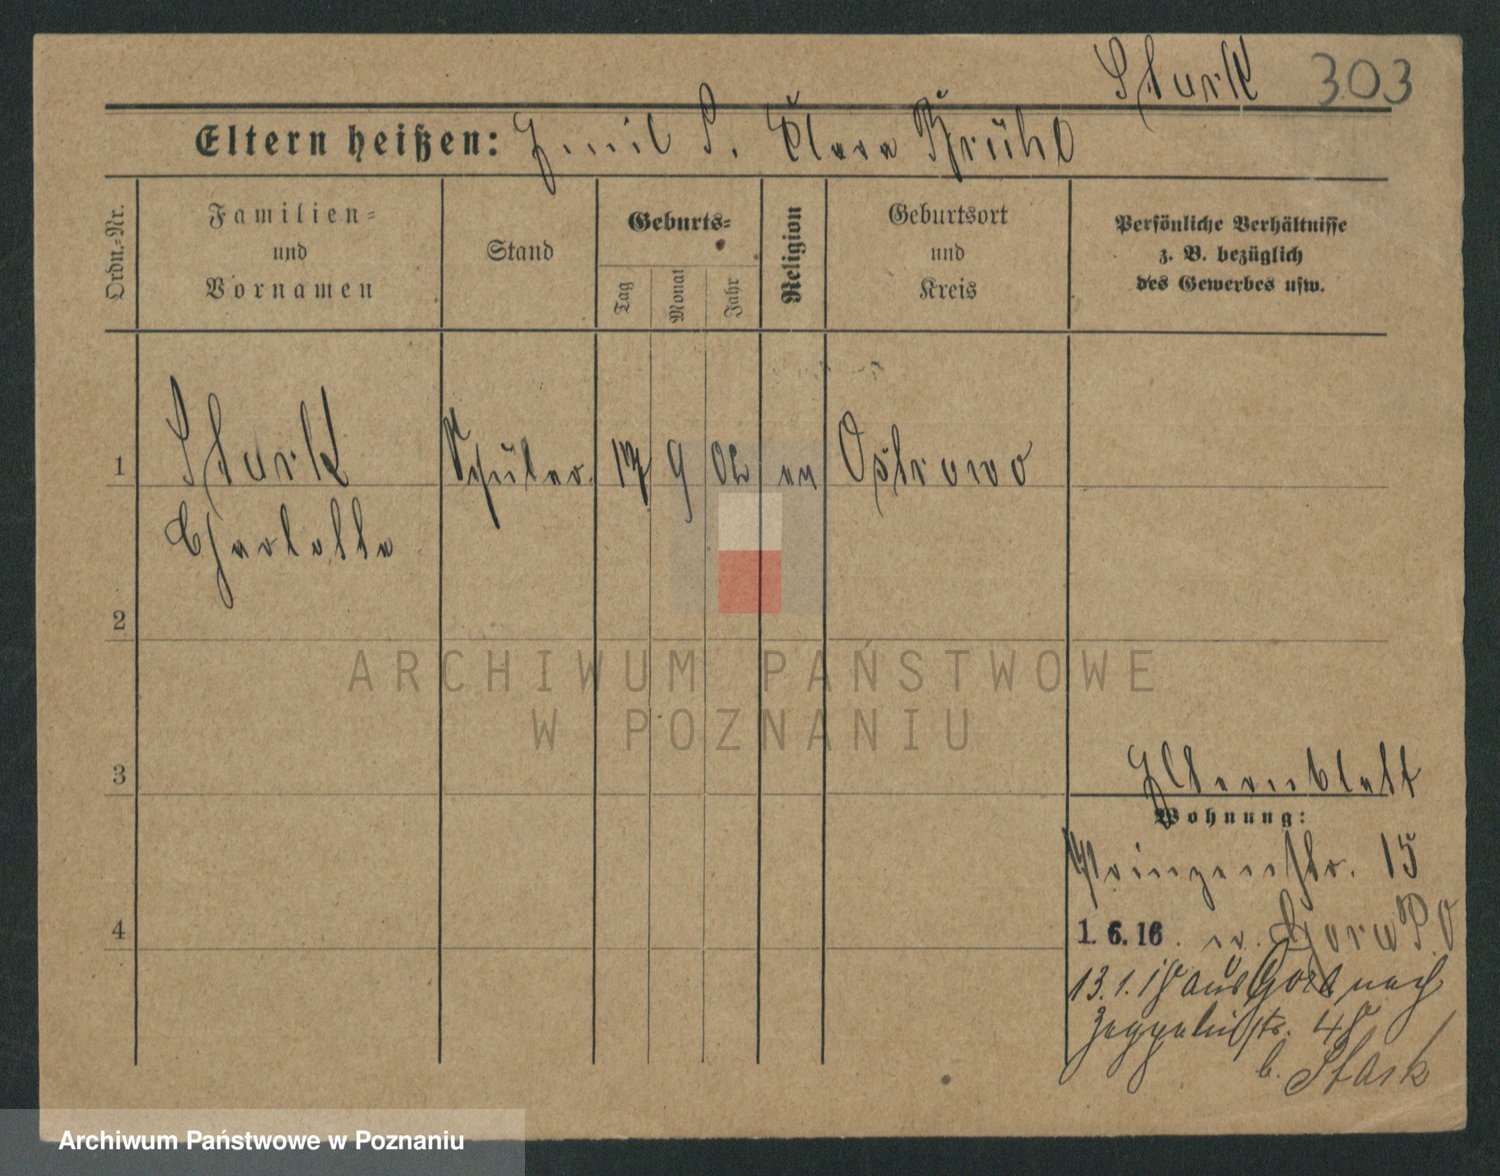 Stark 303
Eltern heißen: Emil S. Clara Brühl
Ordn.-Nr.
Familien- und Vornamen
Stand
Geburts-
Tag
Monat
Jahr
Religion
Geburtsort und Kreis
Persönliche Verhältnisse
z. B. bezüglich
des Gewerbes usw.
1 Stark Schüler. 17 9 02 ev Ostrowo
Charlotte
2
ARCHIWUM PAŃSTWOWE
W POZNANIU
3
Elternblatt
Wohnung:
Prinzenstr. 15
4
1. 6. 16. n. Gora
13.1.18 aus Gora nach
Zeppelinstr. 48
b. Stark
Archiwum Państwowe w Poznaniu